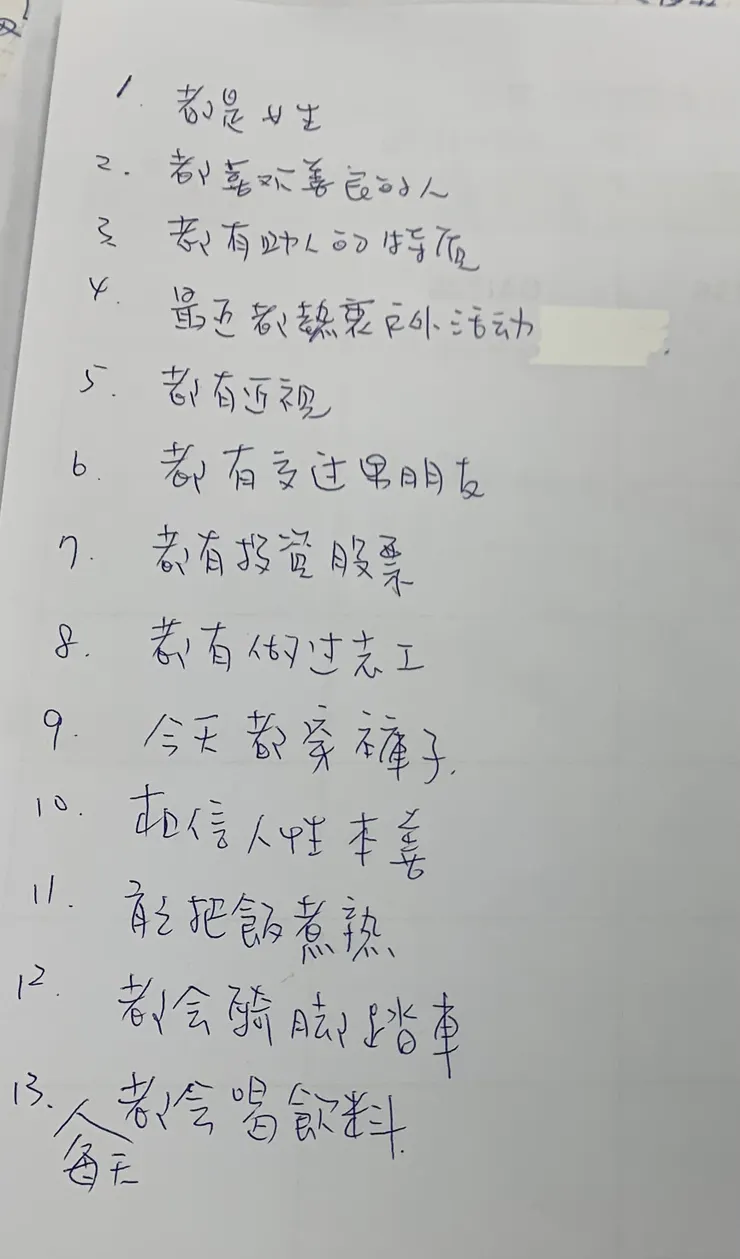 1. 都是女生
2. 都喜欢善良的人
3. 都有助人的特质
4. 最近都熱衷户外活动
5. 都有近視
6. 都有交过男朋友
7. 都有投資股票
8. 都有做过志工
9. 今天都穿褲子.
10. 相信人性本善
11. 能把飯煮熟
12. 都会騎脚踏車
13. 每天都会喝飲料.